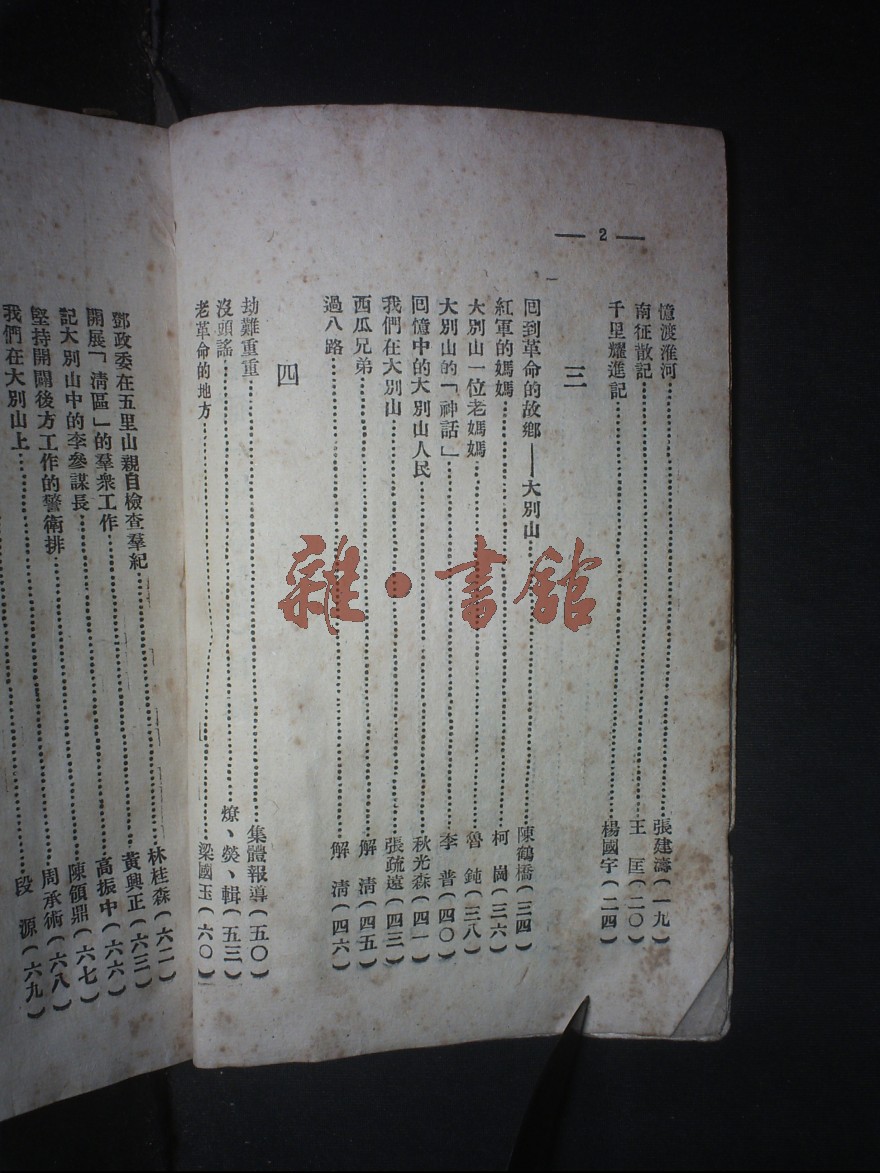 — 2 —
憶渡淮河……張建濤(一九)
南征散記……王匡(二〇)
千里躍進記……楊國宇(二四)
三
回到革命的故鄉——大別山……陳鶴橋(三四)
紅軍的媽媽……柯崗(三六)
大別山一位老媽媽……魯鈍(三八)
大別山的「神話」……李普(四〇)
回憶中的大別山人民……秋光森(四一)
我們在大別山……張疏遠(四三)
西瓜兄弟……解清(四五)
過八路……解清(四六)
四
劫難重重……集體報導(五〇)
沒頭謠……燎、熒、輯(五三)
老革命的地方……梁國玉(六〇)
林桂森(六二)
鄧政委在五里山親自檢查羣紀……黃興正(六三)
開展「清區」的羣衆工作……高振中(六六)
記大別山中的李參謀長……陳領鼎(六七)
堅持開闢後方工作的警衛排……周承術(六八)
我們在大別山上……段源(六九)
雜·書館